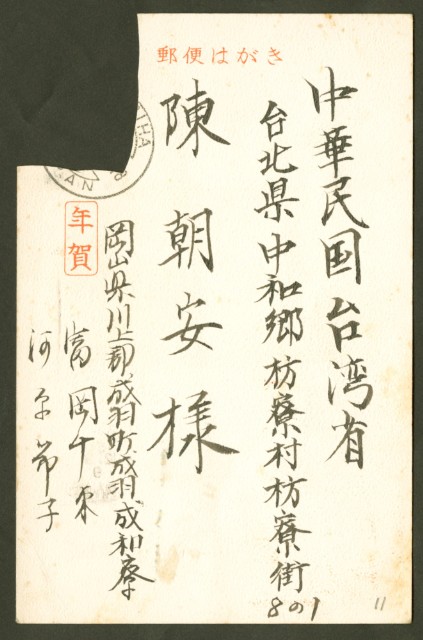 郵便はがき
中華民国台湾省
台北県中和郷枋寮村枋寮街
8の1
陳朝安様
年賀
岡山県川上郡成羽町成羽成和寮
富岡千束
河原節子
11